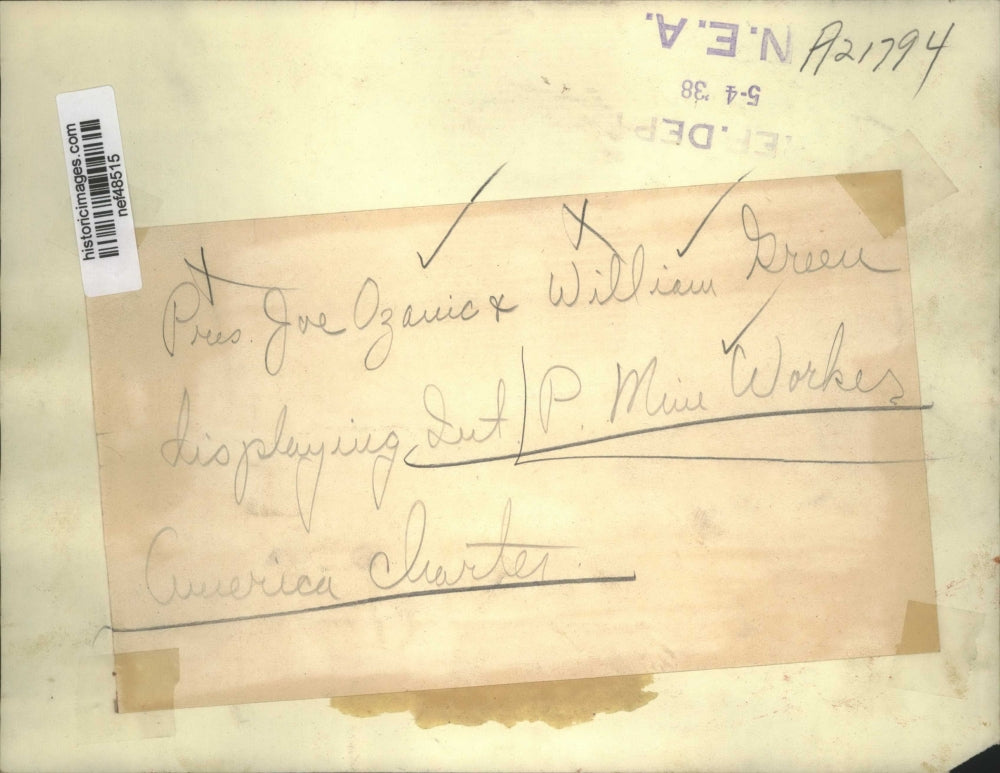 N.E.A.
A21794
5-4 '38
EF. DEPT
historicimages.com
nef48515
Pres. Joe Ozanic & William Green
displaying Int P. Mine Workers
America Charter.